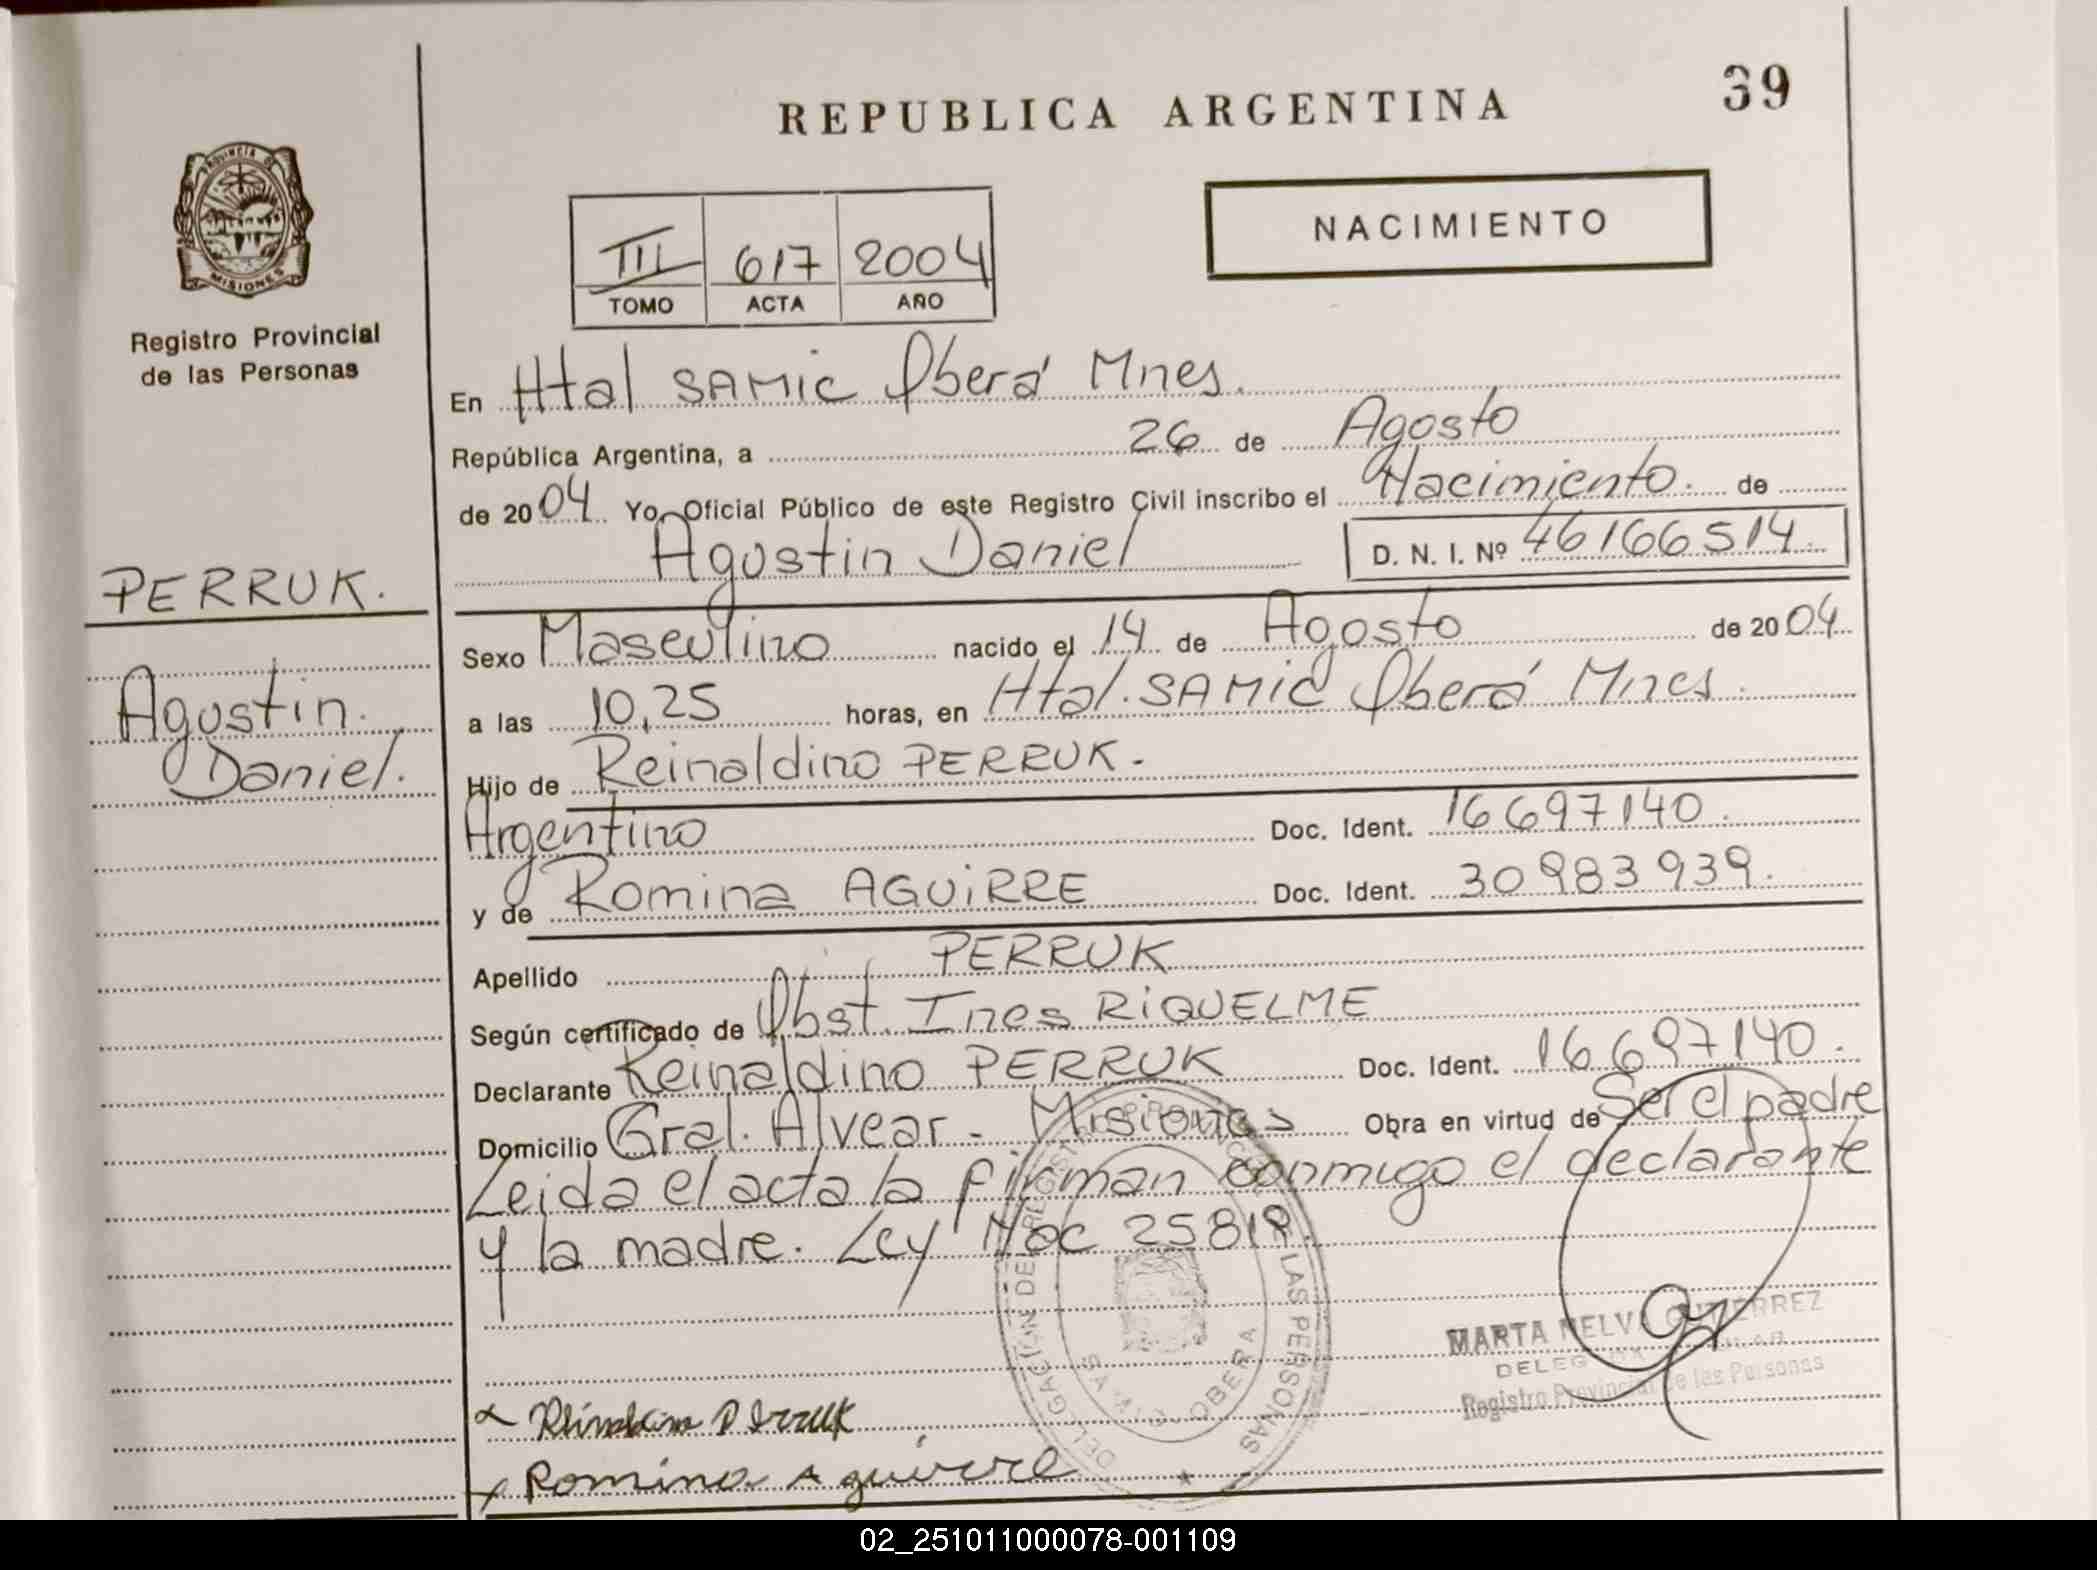 REPUBLICA ARGENTINA
39
PROVINCIA DE
MISIONES
Registro Provincial
de las Personas
III 617 2004
TOMO ACTA AÑO
NACIMIENTO
En Htal SAMIC Oberá Mnes.
República Argentina, a 26 de Agosto
de 2004. Yo, Oficial Público de este Registro Civil inscribo el Nacimiento. de
Agustin Daniel D. N. I. Nº 46166514.
PERRUK.
Agustin.
Daniel.
Sexo Masculino nacido el 14 de Agosto de 2004
a las 10,25 horas, en Htal. SAMIC Oberá Mnes.
Hijo de Reinaldino PERRUK.
Argentino Doc. Ident. 16697140.
y de Romina AGUIRRE Doc. Ident. 30983939.
Apellido PERRUK
Según certificado de Obst. Ines RIQUELME
Declarante Reinaldino PERRUK Doc. Ident. 16697140.
Domicilio Gral. Alvear - Misiones Obra en virtud de Ser el padre
Leida el acta la firman conmigo el declarante
y la madre. Ley Nac 25819.
MARTA NELVA GUTIERREZ
Registro Provincial de las Personas
Reinaldino Perruk
Romina Aguirre
OBERA
02_251011000078-001109